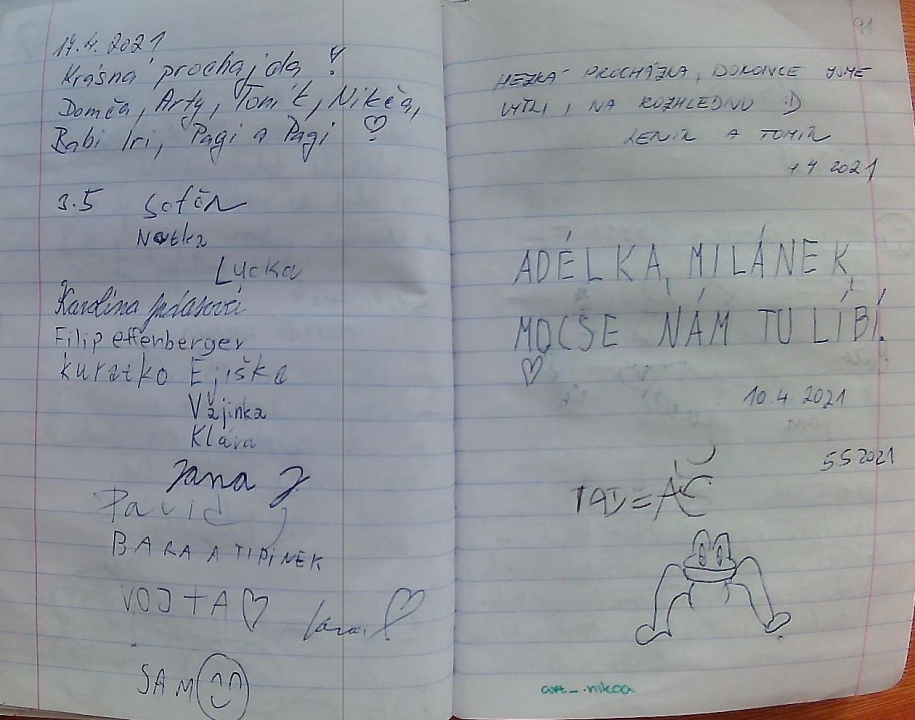 17.4. 2021
Krásná procházda !
Domča, Arty, Tomík, Nikča,
Babi Iri, Pagi a Pagi ♡
3.5
Natka
Lucka
Karolina
Filip effenberger
kuřátko Ejiška
Vájinka
Klára
Jana J
David
BARA A TIPINEK
VOJTA ♡
SAM
91
HEZKÁ PROCHÁZKA, DOKONCE JSME
VYŠLI, NA ROZHLEDNU :D
LENIK A TOMÍK
4 2021
ADÉLKA, MILÁNEK,
MOCSE NÁM TU LÍBÍ.
♡
10.4. 2021
5 5 2021
art_nikca